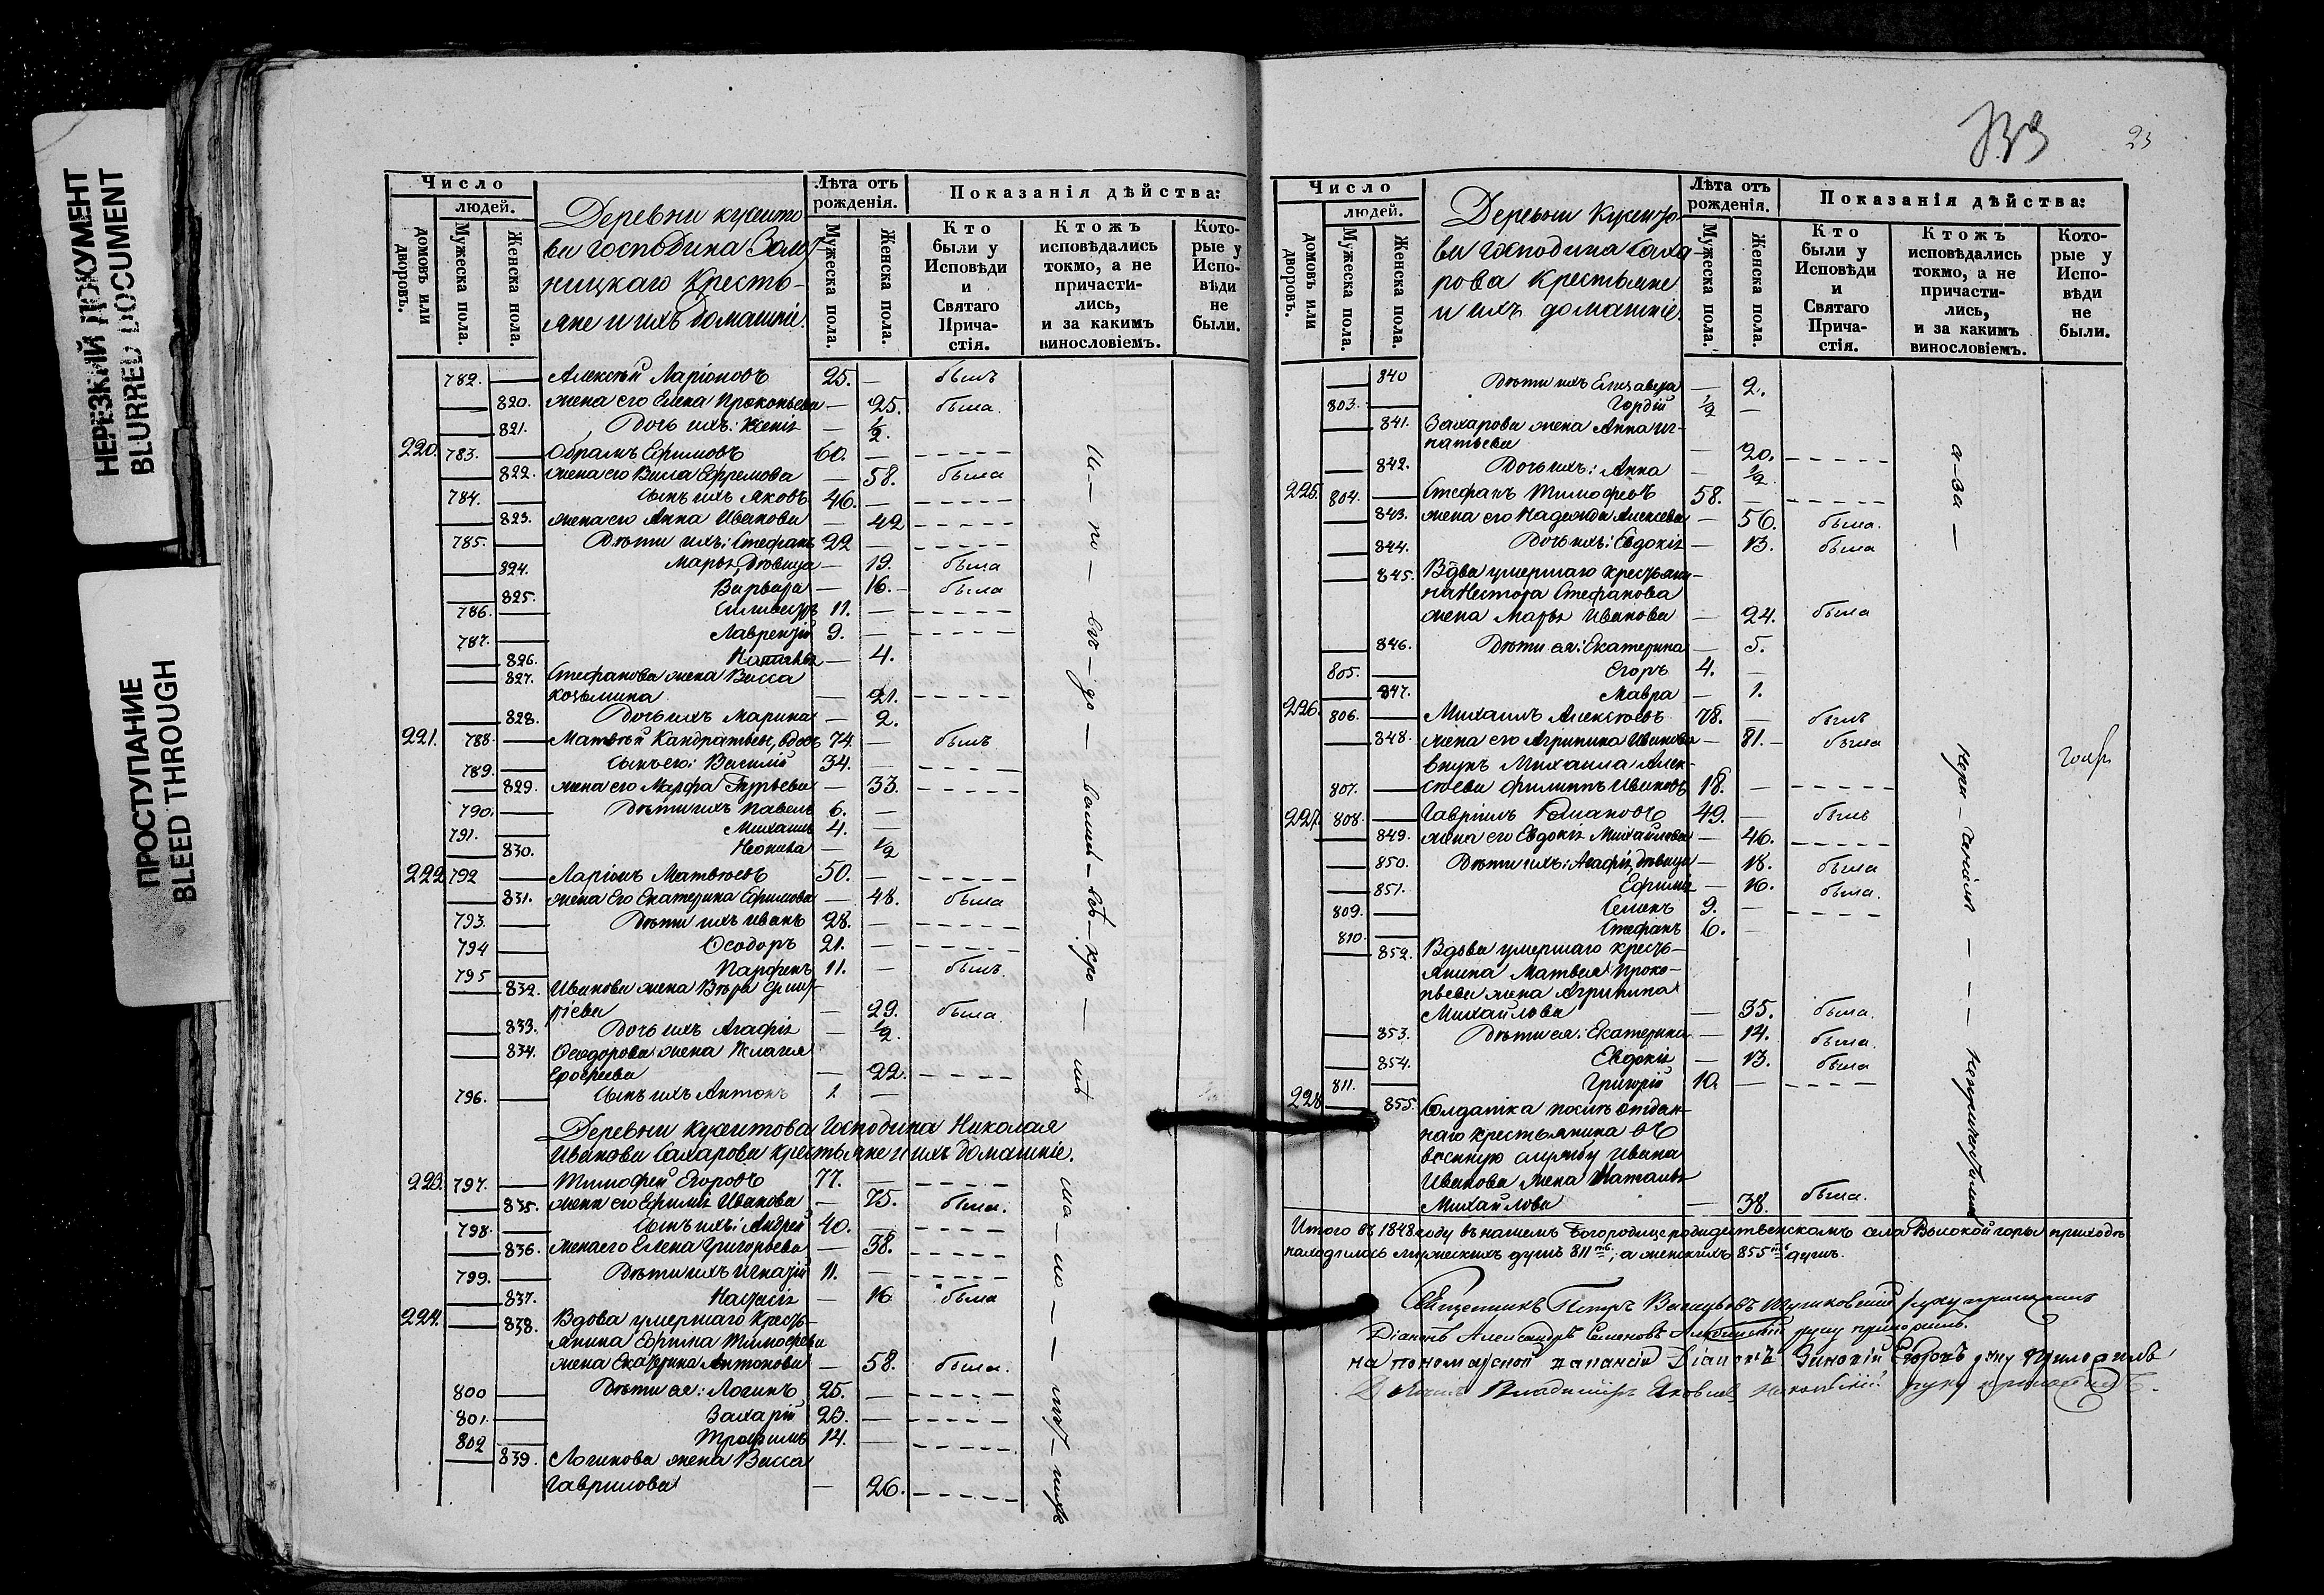 НЕРЕЗКИЙ ДОКУМЕНТ
BLURRED DOCUMENT
ПРОСТУПАНИЕ
BLEED THROUGH
Число
людей.
домовъ или дворовъ.
Мужеска пола.
Женска пола.
Деревни кужито
ви господина
ницкаго Кресть-
яне и ихъ домашніе.
Лѣта отъ рожденія.
Мужеска пола.
Женска пола.
Показанія дѣйства:
Кто были у Исповѣди и Святаго Причастія.
Ктожъ исповѣдались токмо, а не причастились, и за какимъ винословіемъ.
Которые у Исповѣди не были.
782. Алексѣй Ларіоновъ 25. — былъ
820. жена его Елена Прокопьева — 25. была.
821. Дочь ихъ: Ксенія — ½
220. 783. Обрамъ Ефимовъ 60. —
822. жена его Васса Ефремова — 58. была
784. сынъ ихъ Яковъ 46. —
823. жена его Анна Иванова — 42
785. Дѣти ихъ: Стефанъ 22 —
824. Марья, дѣвица — 19. была
825. Варвара — 16. была
786. Сильвестръ 11. —
787. Лаврентій 9. —
826. Наталья — 4.
827. Стефанова жена Васса
козьмина — 21.
828. Дочь ихъ Марина — 2.
221. 788. Матвѣй Кандратьевъ, вдовъ 74. — былъ
789. Сынъ его: Василій 34. —
829. жена его Марфа Гурьева — 33.
790. Дѣти ихъ Павелъ 6. —
791. Михаилъ 4. —
830. Неонила — ½
222 792 Ларіонъ Матвѣевъ 50. —
831. жена Его Екатерина Ефимова — 48. была
793. Дѣти ихъ иванъ 28. —
794 Ѳеодоръ 21. —
795 Парфенъ 11. — былъ.
832. Иванова жена Вѣра
— 29. была.
833. Дочь ихъ Агафія — ½
834. Ѳеодорова жена Пелагея
Ерофеева — 22.
796. Сынъ ихъ Антонъ 1 —
Деревни кужитова Господина Николая
Иванова Сахарова крестьяне и ихъ домашніе.
223. 797. Тимофей Егоровъ 77. —
835. жена его Ефимія Иванова — 75. была.
798. Сынъ ихъ: Андрей 40. —
836. жена его Елена Григорьева — 38.
799. Дѣти ихъ Игнатій 11. —
837. Настасія — 16 была
224. 838. Вдова умершаго Кресть-
янина Ефима Тимофеева
жена Екатерина Антонова — 58. была.
800 Дѣти ея: Логинъ 25. —
801. Захарій 23. —
802 Трофимъ 14. —
839. Логинова жена Васса
Гаврилова — 26.
23
Число
людей.
домовъ или дворовъ.
Мужеска пола.
Женска пола.
Деревни Кужито-
ви господина Саха
рова Крестьяне
и ихъ домашніе.
Лѣта отъ рожденія.
Мужеска пола.
Женска пола.
Показанія дѣйства:
Кто были у Исповѣди и Святаго Причастія.
Ктожъ исповѣдались токмо, а не причастились, и за какимъ винословіемъ.
Которые у Исповѣди не были.
840 Дѣти ихъ Елизавета — 2.
803. Гордій ½ —
841. Захарова жена Анна иг-
натьева — 20.
842. Дочь ихъ: Анна — ½
225. 804. Стефанъ Тимофеевъ 58. —
843. жена его Надежда Алексеева — 56. была.
844. Дочь ихъ: Евдокія — 13. была
845. Вдова умершаго крестьяни-
на Нестора Стефанова
жена Марья Иванова — 24. была
846. Дѣти ея: Екатерина — 5.
805. Егоръ 4. —
847. Мавра — 1.
226. 806. Михаилъ Алексѣевъ 78. — былъ
848. жена его Агрипина Иванова — 81. — была
внукъ Михаила Алек-
807. сѣева филиппъ Ивановъ 18. —
227. 808. Гавріилъ 49. — былъ
849. жена его Евдокія Михайлова — 46.
850. Дѣти ихъ: Агафія, дѣвица — 18. была
851. Ефимія — 16. была.
809. Семенъ 9. —
810. Стефанъ 6. —
852. Вдова умершаго кресть-
янина Матвея Проко-
пьева жена Агрипина
Михайлова — 35. была.
853. Дѣти ея: Екатерина — 14. была.
854. Евдокія — 13. была
811. Григорій 10. —
228 855. Солдатка послѣ отдан-
наго крестьянина въ
военную службу Ивана
Иванова жена Наталья
Михайлова — 38. была.
Итого въ 1848 году въ нашемъ Богородицерождественскомъ села Высокой горы приходѣ
находилось мужескихъ душъ 811ть, а женскихъ 855ть душъ.
Священникъ Петръ Васильевъ руку приложилъ
Діаконъ Александръ Семеновъ руку приложилъ.
на пономарской вакансіи Діаконъ Зиновій Егоровъ руку приложилъ
Владиміръ Яковлевъ руку приложилъ.